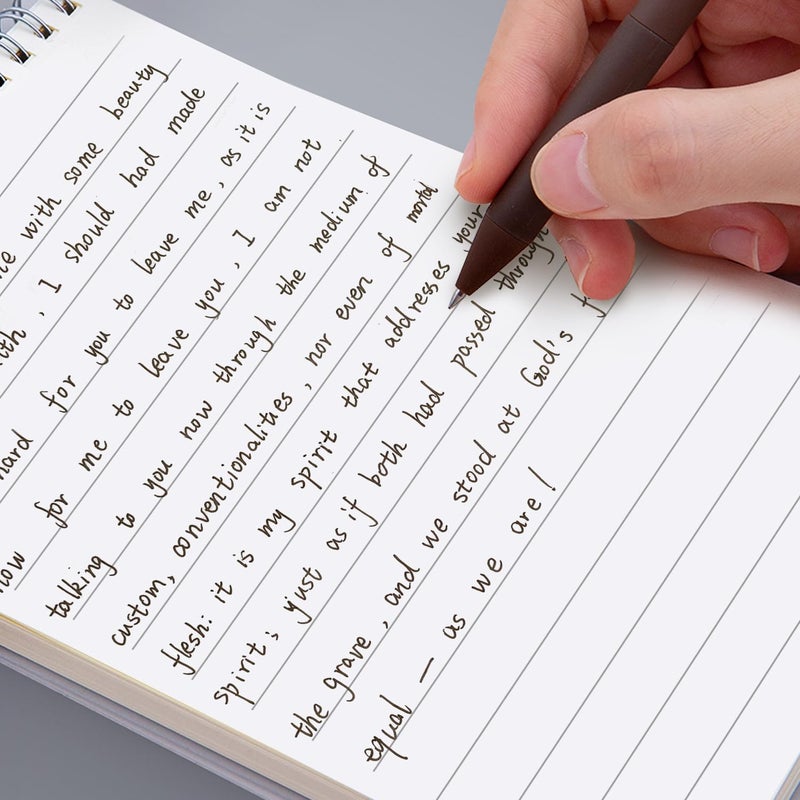 with some beauty
, I should had made
hard for you to leave me, as it is
now for me to leave you, I am not
talking to you now through the medium of
custom, conventionalities, nor even of mortal
flesh: it is my spirit that addresses your
spirit; just as if both had passed through
the grave, and we stood at God's
equal — as we are!